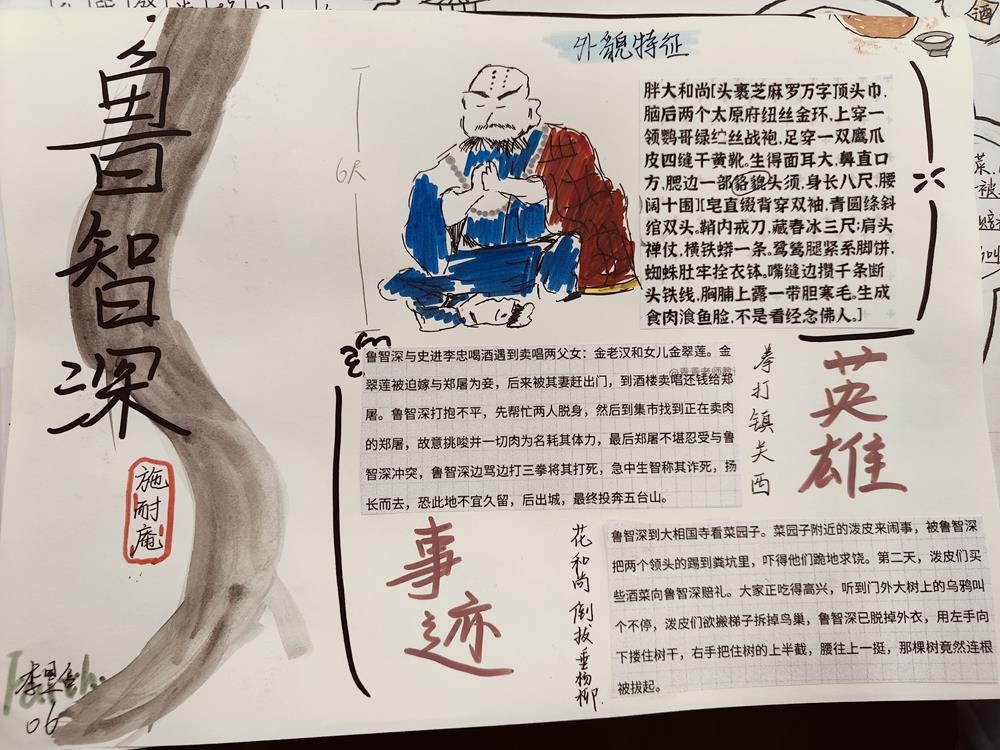 鲁智深
施耐庵
06
外貌特征
6尺
胖大和尚[头裹芝麻罗万字顶头巾,
脑后两个太原府纽丝金环,上穿一
领鹦哥绿纻丝战袍,足穿一双鹰爪
皮四缝干黄靴。生得面耳大,鼻直口
方,腮边一部貉貌头须,身长八尺,腰
阔十围][皂直缀背穿双袖,青圆绦斜
绾双头。鞘内戒刀,藏春冰三尺;肩头
禅仗,横铁蟒一条。鹭鸶腿紧系脚饼,
蜘蛛肚牢拴衣钵。嘴缝边攒千条断
头铁线,胸脯上露一带胆寒毛。生成
食肉飡鱼脸,不是看经念佛人。]
鲁智深与史进李忠喝酒遇到卖唱两父女：金老汉和女儿金翠莲。金
翠莲被迫嫁与郑屠为妾，后来被其妻赶出门，到酒楼卖唱还钱给郑
屠。鲁智深打抱不平，先帮忙两人脱身，然后到集市找到正在卖肉
的郑屠，故意挑唆并一切肉为名耗其体力，最后郑屠不堪忍受与鲁
智深冲突，鲁智深边骂边打三拳将其打死，急中生智称其诈死，扬
长而去，恐此地不宜久留，后出城，最终投奔五台山。
拳打镇关西
英雄
事迹
花和尚倒拔垂杨柳
鲁智深到大相国寺看菜园子。菜园子附近的泼皮来闹事，被鲁智深
把两个领头的踢到粪坑里，吓得他们跪地求饶。第二天，泼皮们买
些酒菜向鲁智深赔礼。大家正吃得高兴，听到门外大树上的乌鸦叫
个不停，泼皮们欲搬梯子拆掉鸟巢，鲁智深已脱掉外衣，用左手向
下搂住树干，右手把住树的上半截，腰往上一挺，那棵树竟然连根
被拔起。
酒